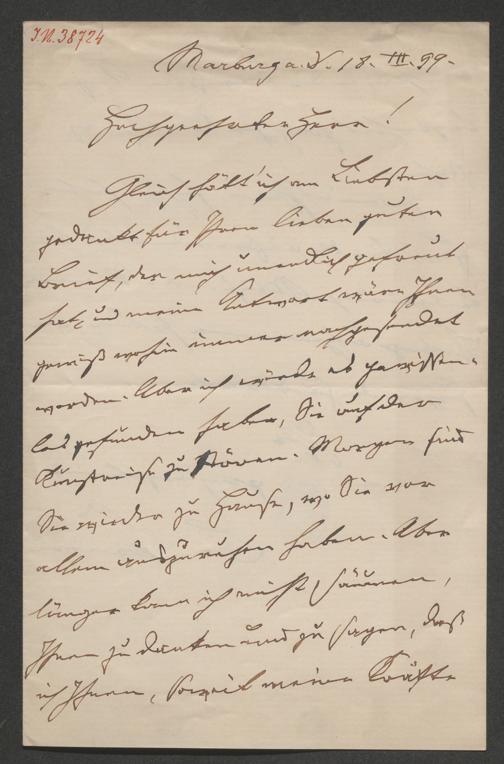 I.N. 38724
Marburg a. D. 18. III. 99.
Hochgeehrter Herr!
Gleich hätt' ich am Liebsten
gedankt für Ihren lieben guten
Brief, der mich unendlich gefreut
hat, und meine Antwort wäre Ihnen
gewiß wohin immer nachgesendet
worden. Aber ich würde es gewissen-
los gefunden haben, Sie auf der
Kunstreise zu stören. Morgen sind
Sie wieder zu Hause, wo Sie vor
allem auszuruhen haben. Aber
länger kann ich nicht säumen,
Ihnen zu danken und zu sagen, daß
ich Ihnen, soweit meine Kräfte